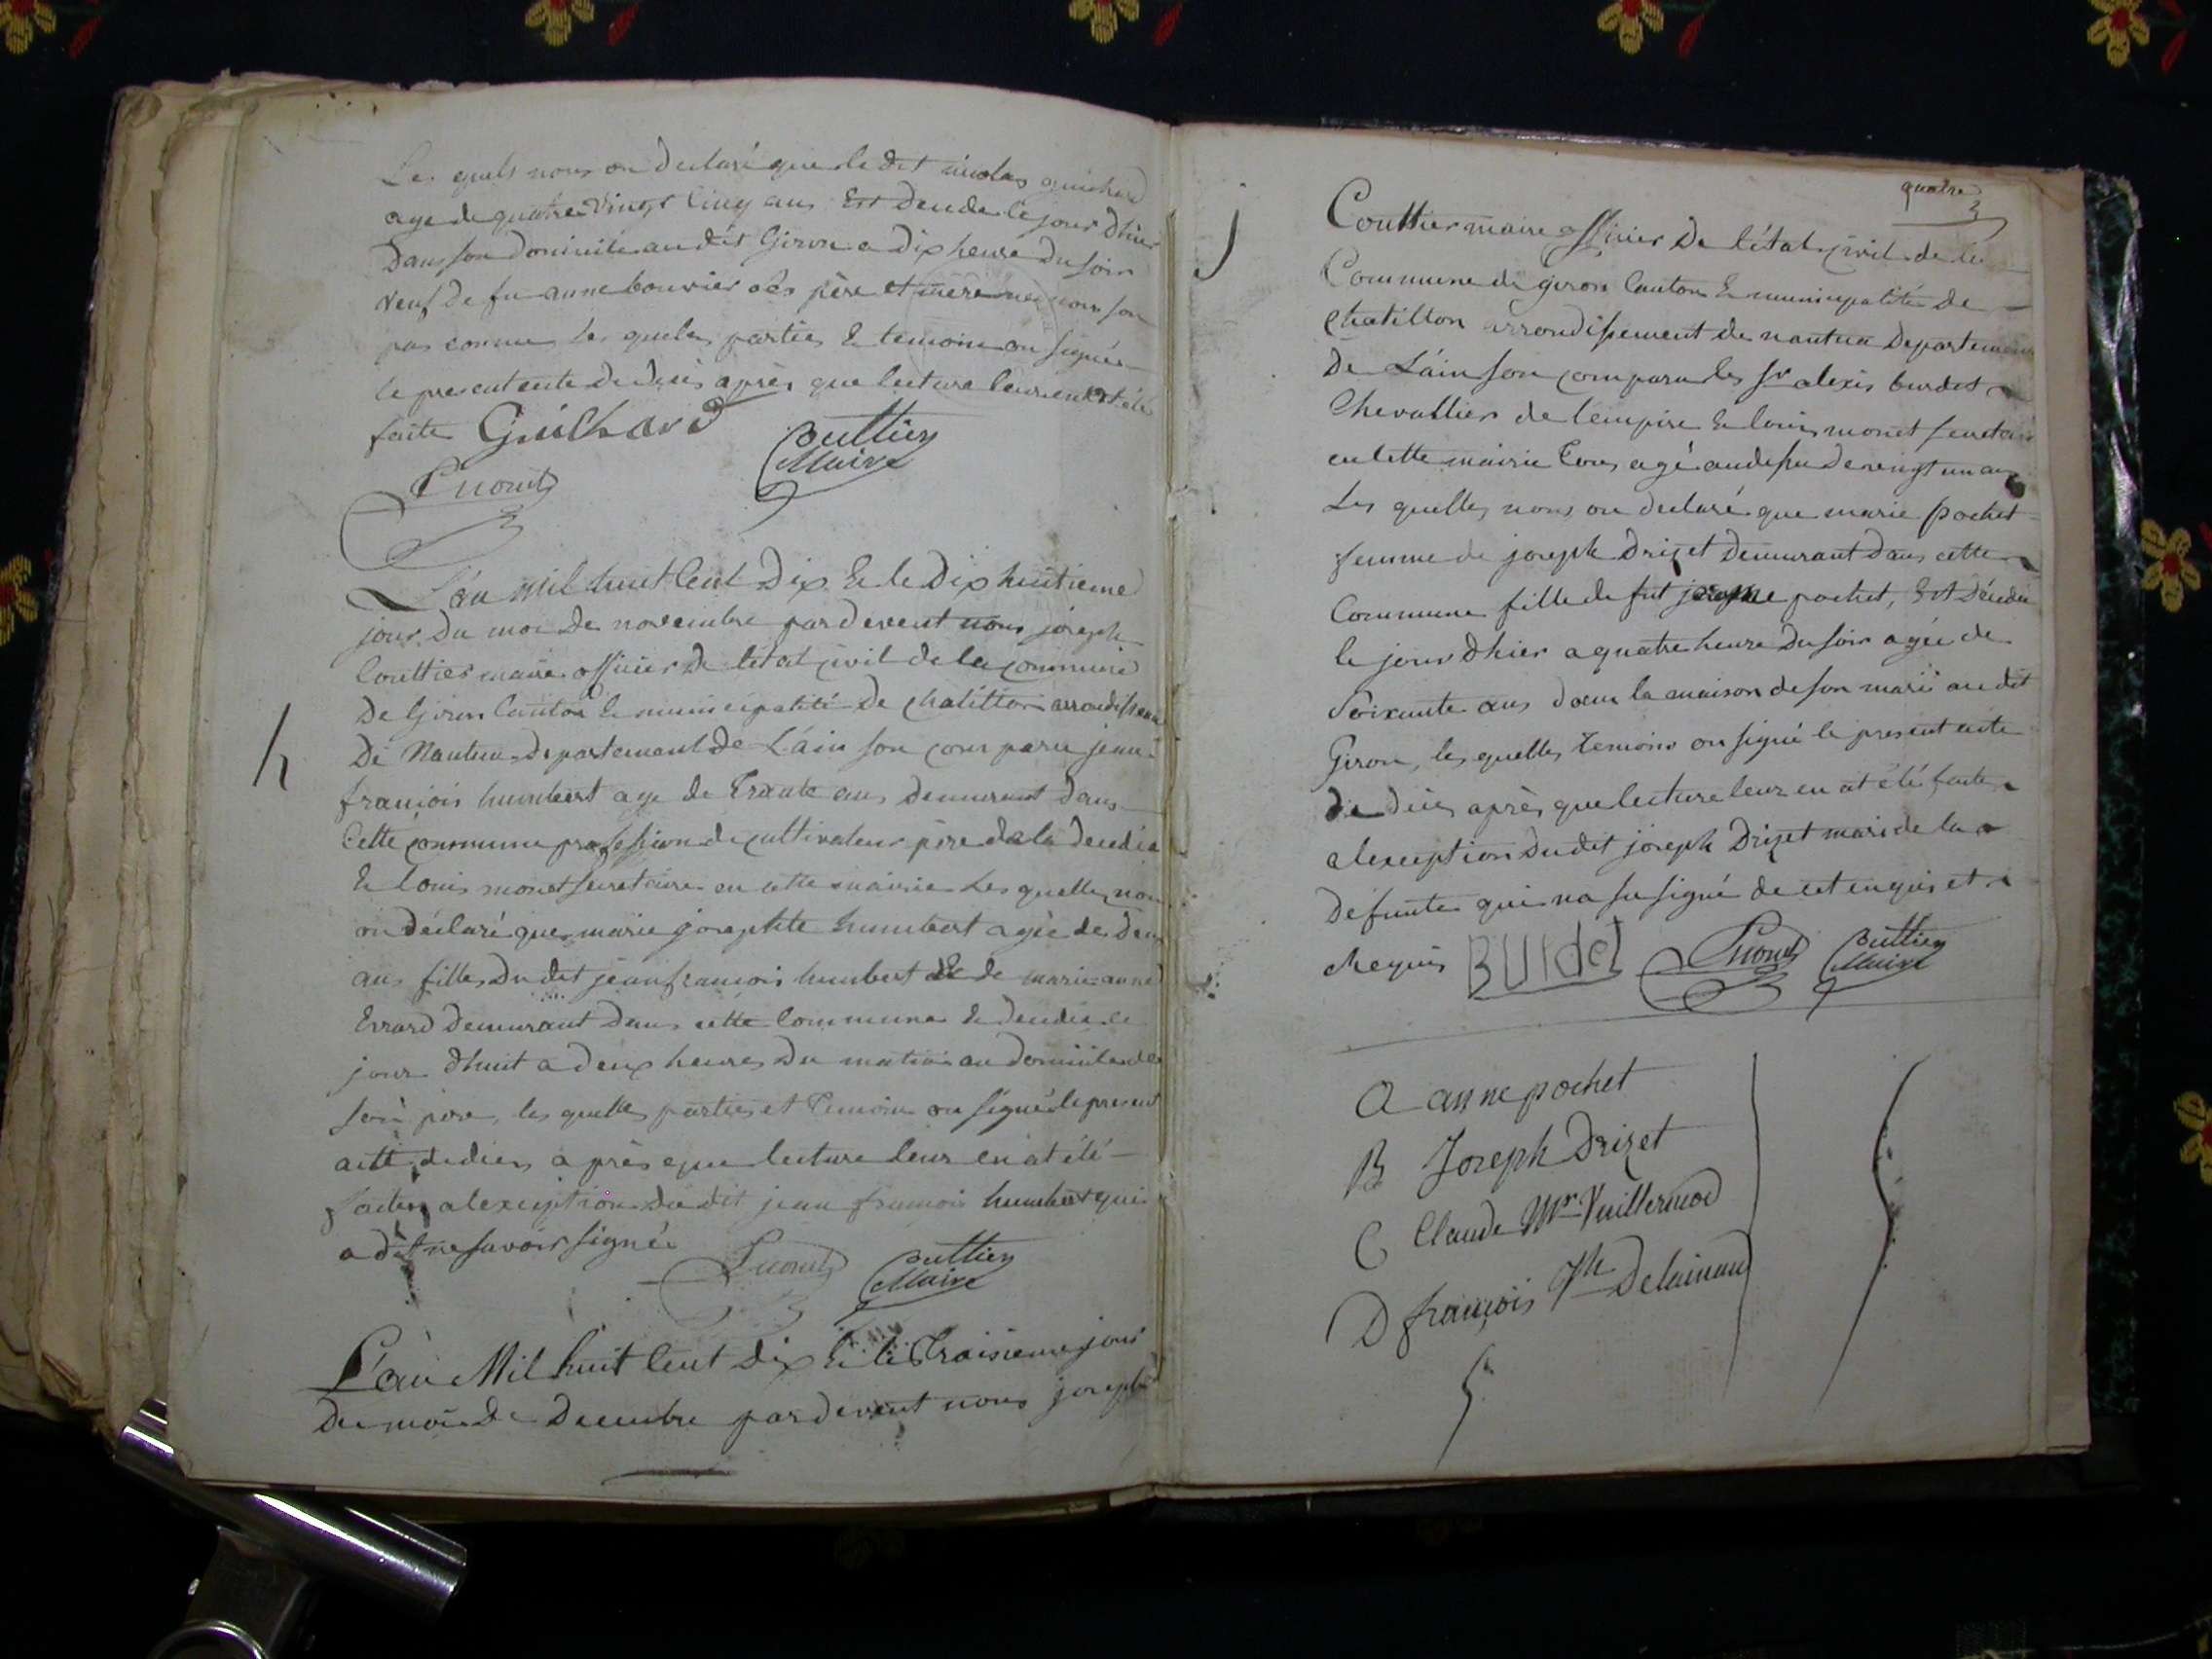 Les quels nous on declaré que le dit nicolas guichard
age de quatre Vingt Cinq ans Est decude le jour dhier
Dans son domicile au dit Giron a Dix heure du soir
veuf de fu anne bouvier ses père et mère ne nous son
pas connu les quelles parties & temoins on signée
le present acte de deces après que lecture leur en at été
faite Guichard
Couttier
Maire
L monet
L'an Mil huit Cent Dix & le Dix huitieme
jour du moi de novembre par devent nous joseph
Couttier maire officier de l'état civil de la commune
De Giron Canton & municipalité De chatillon arrondissement
De Nantua departement de L'ain son comparu jean
francois humbert age de Trante ans demurant dans
Cette commune profession de cultivateur père de la decedée
& louis monet secretaire en cette mairie Les quelles nous
on déclaré que marie josephte humbert agée de deux
ans fille du dit jean francois humbert & de marie anne
Evrard demurant dans cette Commune & decedée le
jour dhuit a deux heures du matin au domicile de
son père, les quelles parties et temoins on signé le present
acte de dices après que lecture leur en at été
faites alexception du dit jean francois humbert qui
a dit ne savoir signée
L monet
Couttier
Maire
L'an Mil huit Cent dix & le Troisieme jour
du moi de decembre par devent nous joseph
h
j
quatre
Couttier maire officier De l'état civil de la
Commune de giron Canton & municipalité de
chatillon arrondissement de nantua Departement
De L'ain son comparu les Sr alexis burdet
Chevallier de l'empire & louis monet secretaire
en cette mairie tous agé audessu de vingt un ans
Les quelles nous on declaré que marie pochet
femme de joseph Drizet demurant dans cette
Commune fille de fut pochet, Est décedée
le jour dhier a quatre heure du soir agée de
Soixante ans dans la maison de son marii au dit
Giron, les quelles temoins on signé le present acte
de dices après que lecture leur en at été faite
alexception du dit joseph Drizet mari de la
defunte qui na su signé de cet enquis et
requis BUrdet L monet Couttier
Maire
A anne pochet
B Joseph Drizet
C Claude Mr Vuillermoz
D françois Jh Delainaud